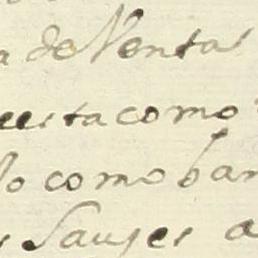 a de Ventas
uesta como
lo como ban
s Sauses a